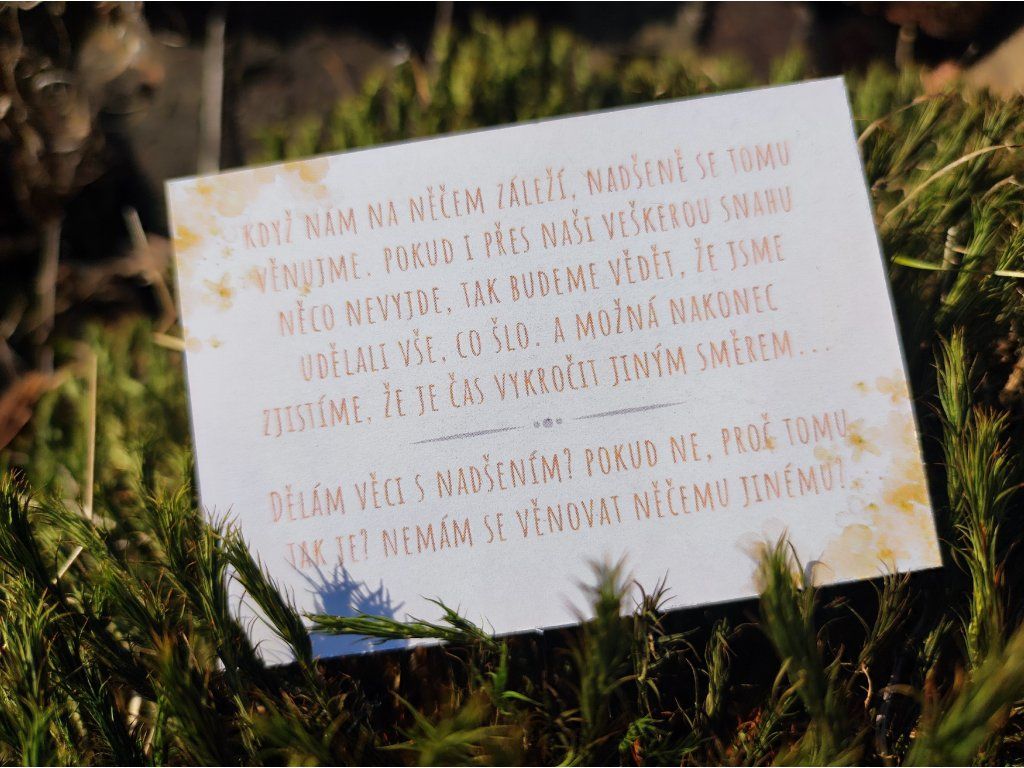 KDYŽ NÁM NA NĚČEM ZÁLEŽÍ, NADŠENĚ SE TOMU
VĚNUJME. POKUD I PŘES NAŠI VEŠKEROU SNAHU
NĚCO NEVYJDE, TAK BUDEME VĚDĚT, ŽE JSME
UDĚLALI VŠE, CO ŠLO. A MOŽNÁ NAKONEC
ZJISTÍME, ŽE JE ČAS VYKROČIT JINÝM SMĚREM...
DĚLÁM VĚCI S NADŠENÍM? POKUD NE, PROČ TOMU
TAK JE? NEMÁM SE VĚNOVAT NĚČEMU JINÉMU?